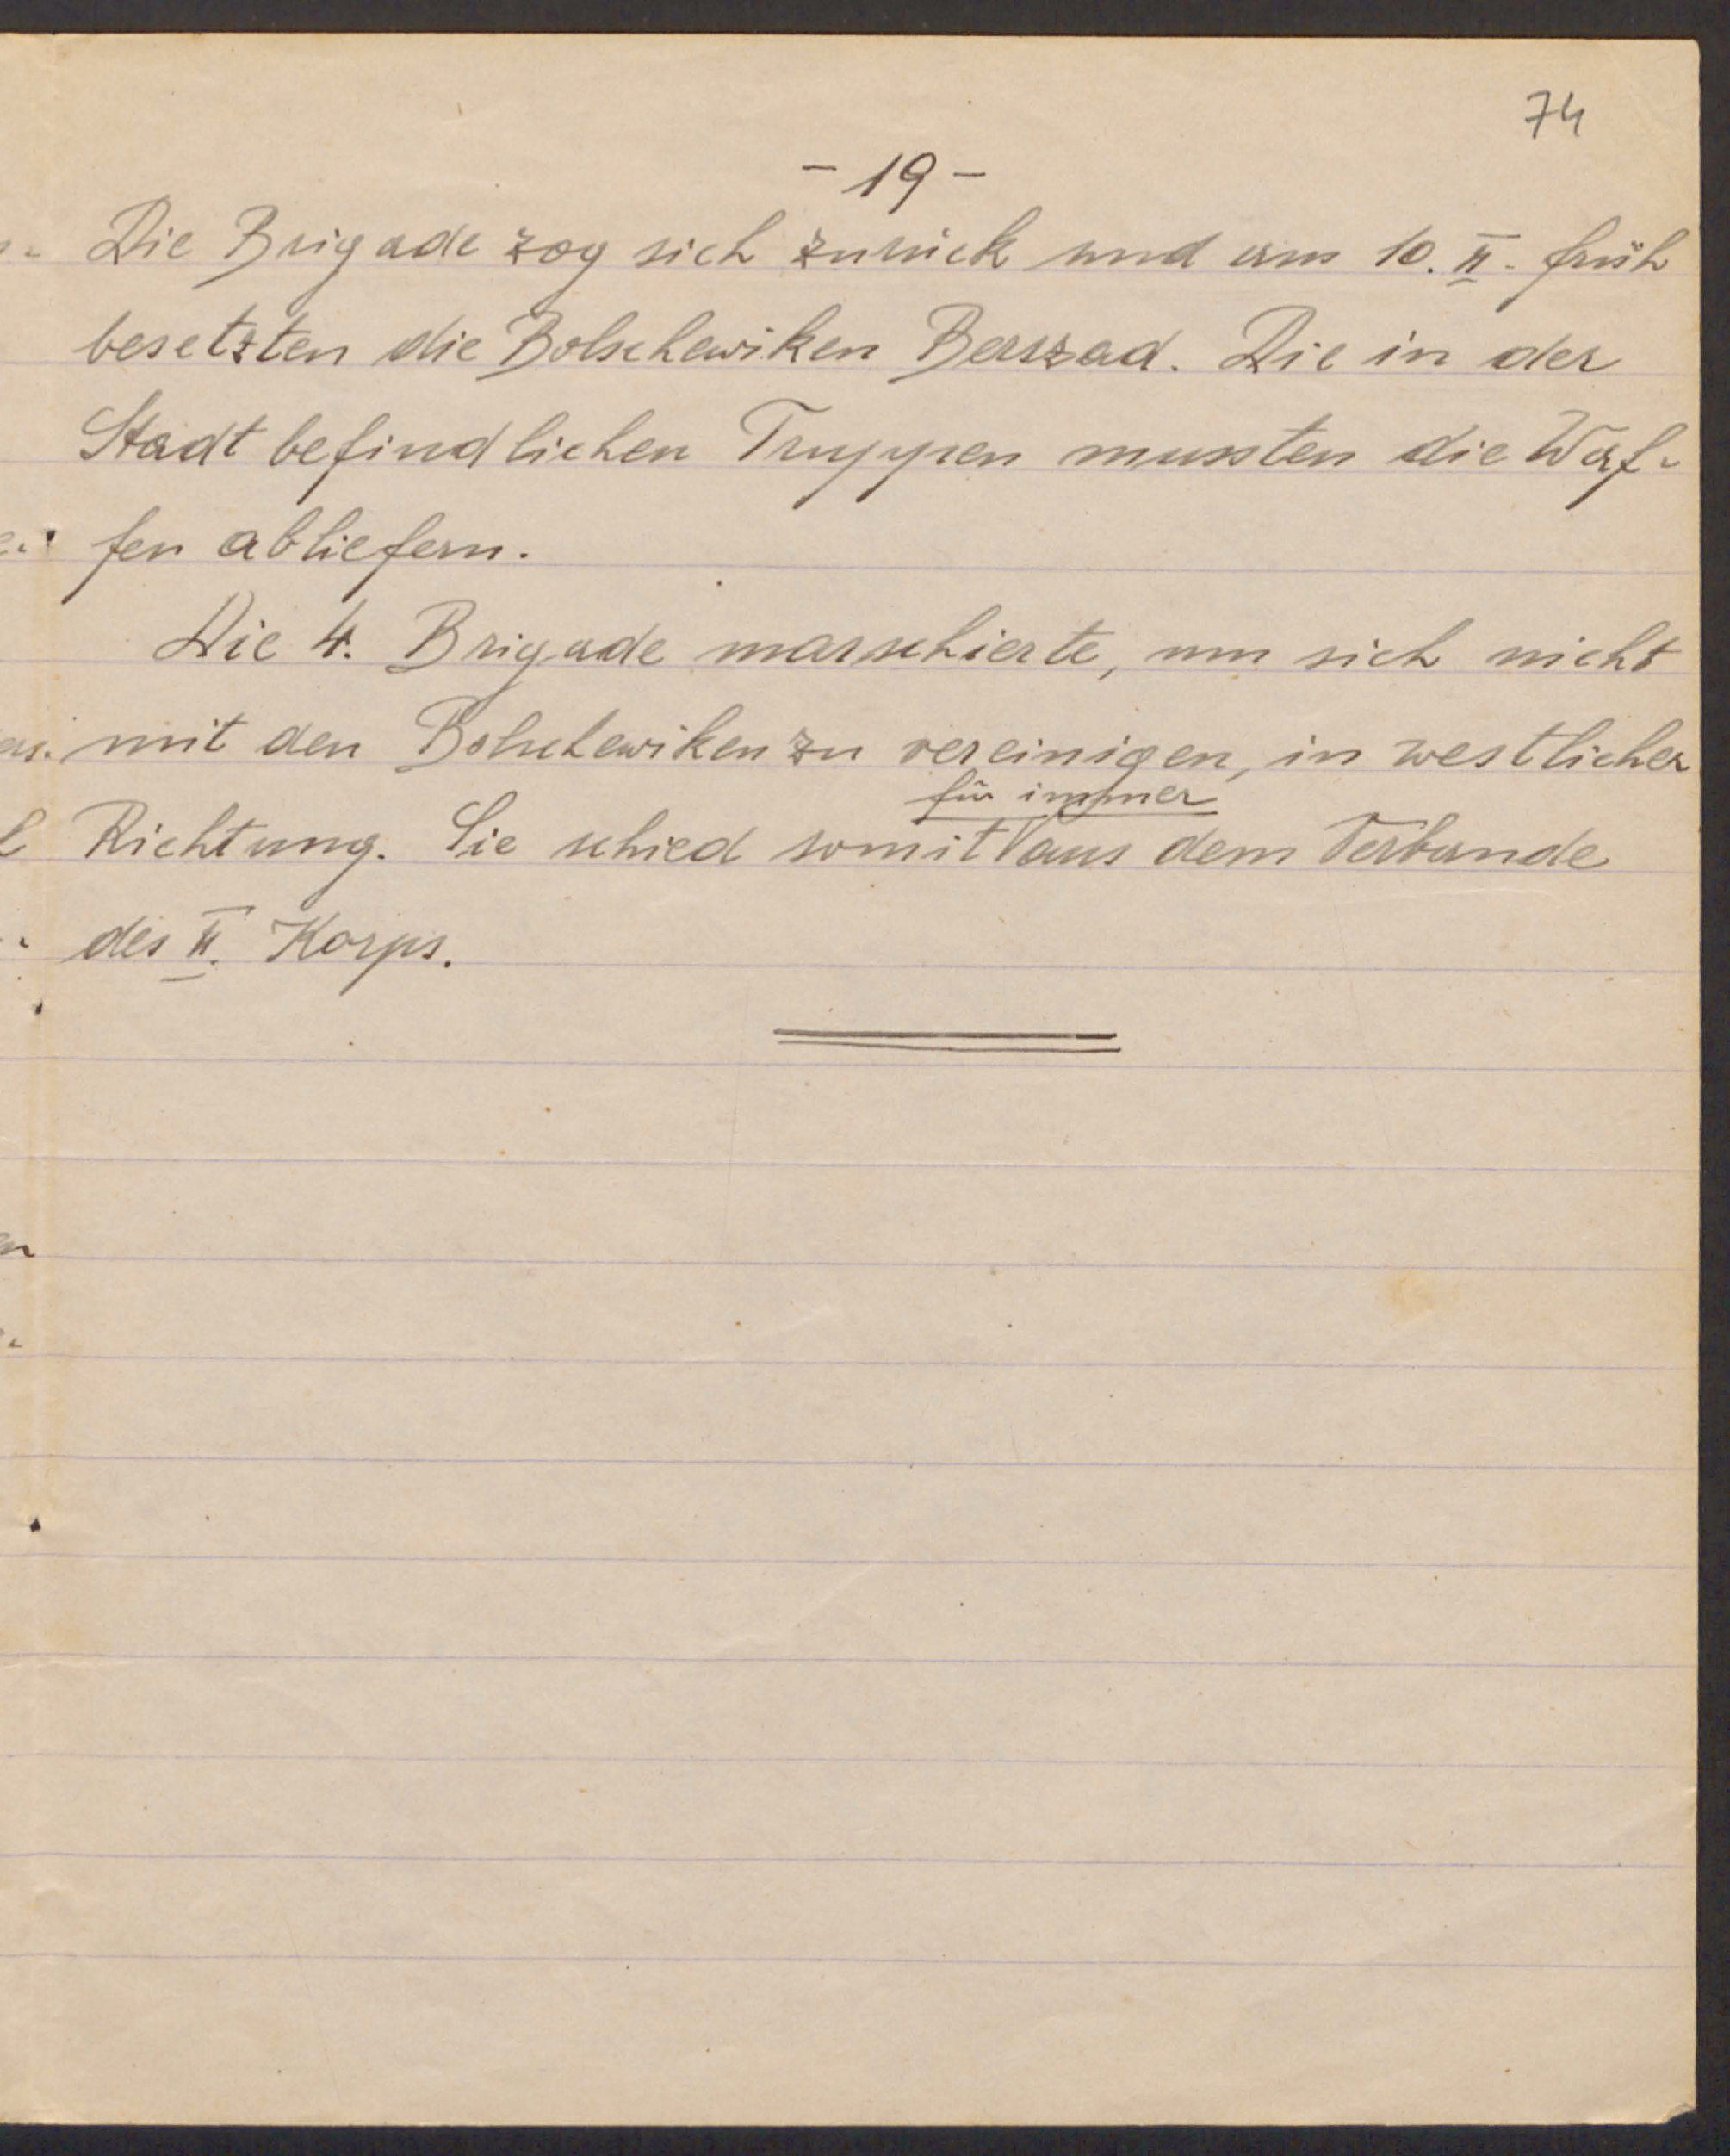 74
- 19 -
Die Brigade zog sich zurück und am 10. II. früh
besetzten die Bolschewiken Berszad. Die in der
Stadt befindlichen Truppen mussten die Waf-
fen abliefern.
Die 4. Brigade marschierte, um sich nicht
mit den Bolschewiken zu vereinigen, in westlicher
für immer
Richtung. Sie schied somit aus dem Verbande
des II. Korps.